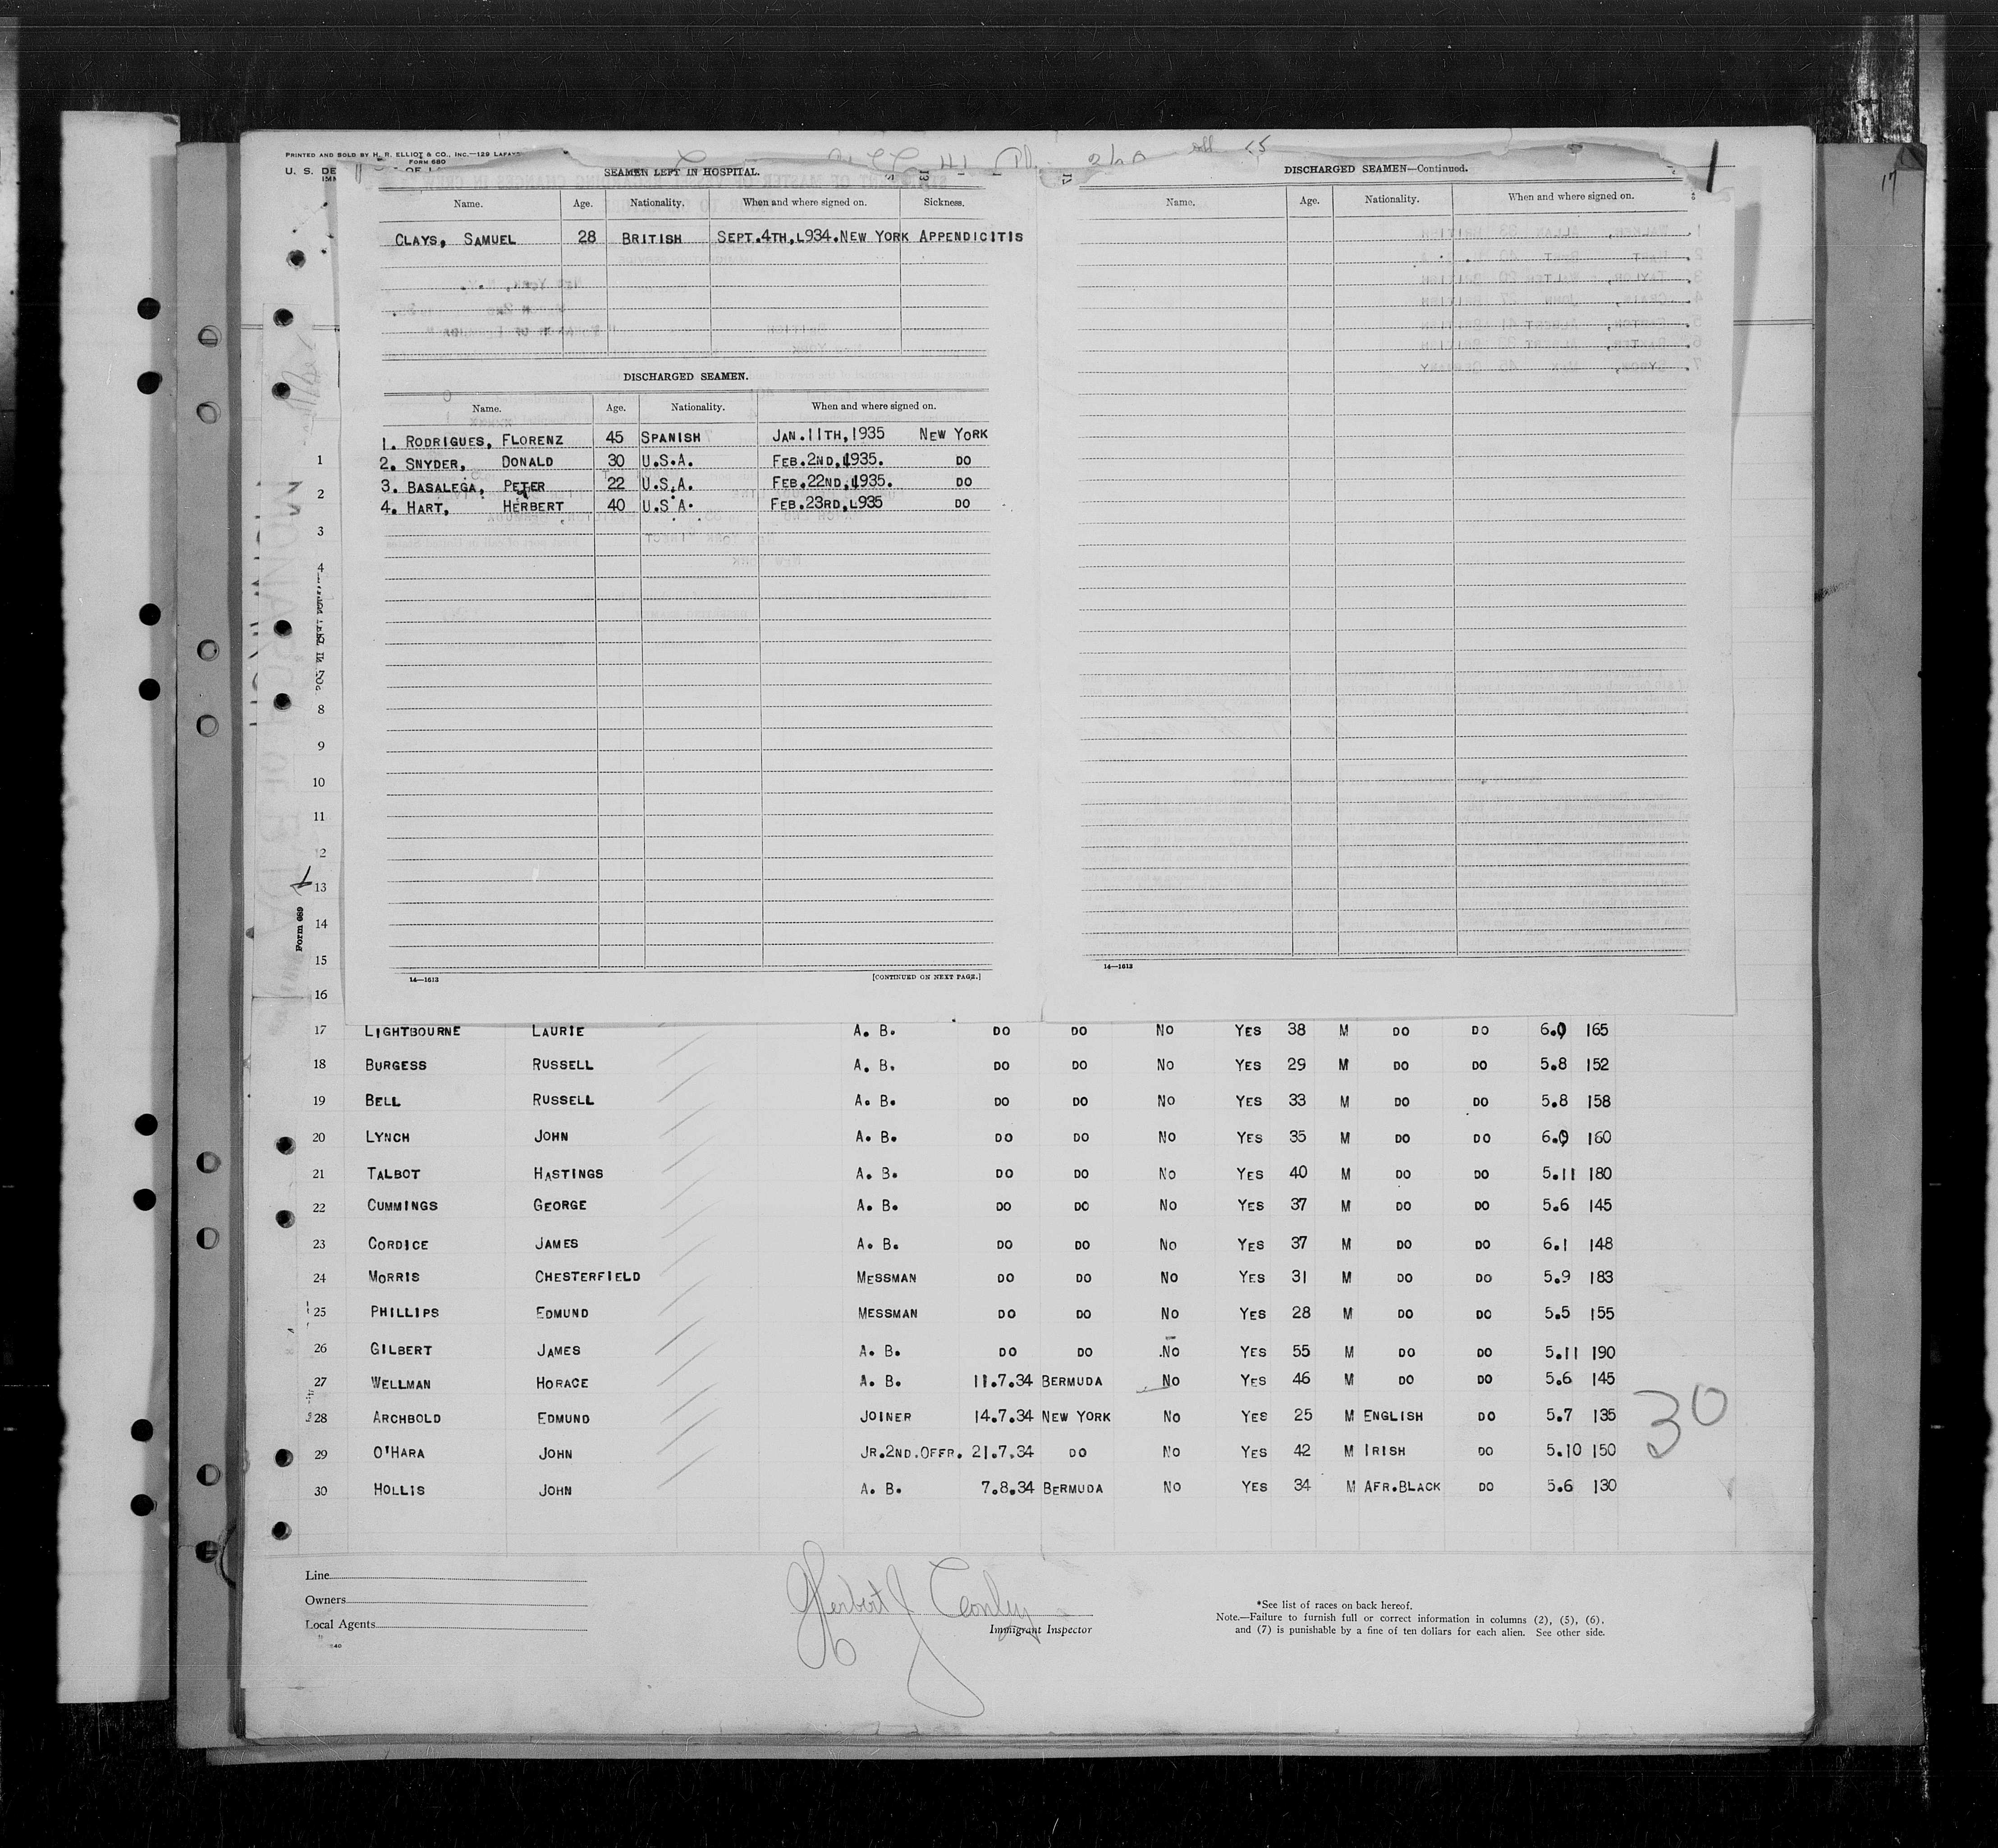 PRINTED AND SOLD BY H. R. ELLIOT & CO., INC.—129 LAFAY
FORM 680
U. S. DE
SEAMEN LEFT IN HOSPITAL.
Name. Age. Nationality. When and where signed on. Sickness.
CLAYS, SAMUEL 28 BRITISH SEPT.4TH,L934.NEW YORK APPENDICITIS
DISCHARGED SEAMEN.
Name. Age. Nationality. When and where signed on.
1. RODRIGUES, FLORENZ 45 SPANISH JAN.11TH,1935 NEW YORK
2. SNYDER, DONALD 30 U.S.A. FEB.2ND,1935. DO
3. BASALEGA, PETER 22 U.S.A. FEB.22ND,1935. DO
4. HART, HERBERT 40 U.S A. FEB.23RD,L935 DO
14—1613 [CONTINUED ON NEXT PAGE.]
DISCHARGED SEAMEN—Continued.
Name. Age. Nationality. When and where signed on.
14—1613
1
2
3
4
8
9
10
11
12
13
14
15
16
Form 689
17 LIGHTBOURNE LAURIE A. B. DO DO NO YES 38 M DO DO 6.0 165
18 BURGESS RUSSELL A. B. DO DO NO YES 29 M DO DO 5.8 152
19 BELL RUSSELL A. B. DO DO NO YES 33 M DO DO 5.8 158
20 LYNCH JOHN A. B. DO DO NO YES 35 M DO DO 6.0 160
21 TALBOT HASTINGS A. B. DO DO NO YES 40 M DO DO 5.11 180
22 CUMMINGS GEORGE A. B. DO DO NO YES 37 M DO DO 5.6 145
23 CORDICE JAMES A. B. DO DO NO YES 37 M DO DO 6.1 148
24 MORRIS CHESTERFIELD MESSMAN DO DO NO YES 31 M DO DO 5.9 183
25 PHILLIPS EDMUND MESSMAN DO DO NO YES 28 M DO DO 5.5 155
26 GILBERT JAMES A. B. DO DO NO YES 55 M DO DO 5.11 190
27 WELLMAN HORACE A. B. 11.7.34 BERMUDA NO YES 46 M DO DO 5.6 145
28 ARCHBOLD EDMUND JOINER 14.7.34 NEW YORK NO YES 25 M ENGLISH DO 5.7 135
29 O'HARA JOHN JR.2ND.OFFR. 21.7.34 DO NO YES 42 M IRISH DO 5.10 150
30 HOLLIS JOHN A. B. 7.8.34 BERMUDA NO YES 34 M AFR.BLACK DO 5.6 130
30
Line
Owners
Local Agents
Herbert J Conley
Immigrant Inspector
*See list of races on back hereof.
Note.—Failure to furnish full or correct information in columns (2), (5), (6),
and (7) is punishable by a fine of ten dollars for each alien. See other side.